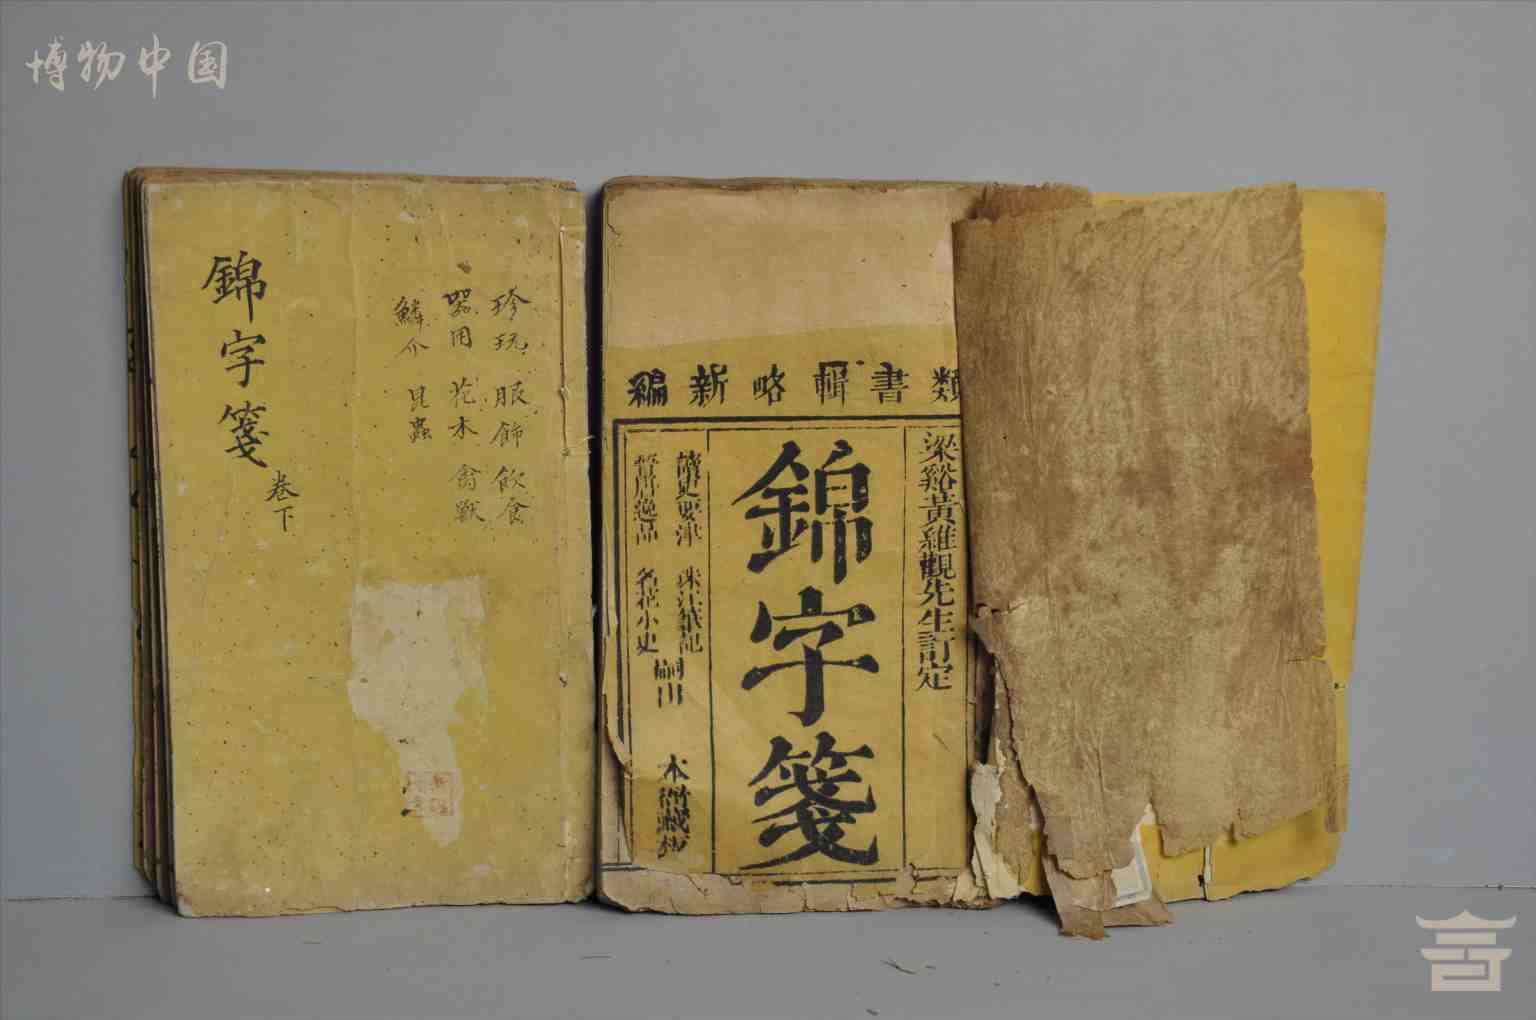 博物中国
錦字箋
卷下
珍玩 服飾 飲食
器用 花木 禽獸
鱗介 昆蟲
類書輯略新編
梁谿黃維觀先生訂定
錦字箋
讀史要津 珠江筆記
晉唐逸品 名花小史
嗣出
本衙藏板